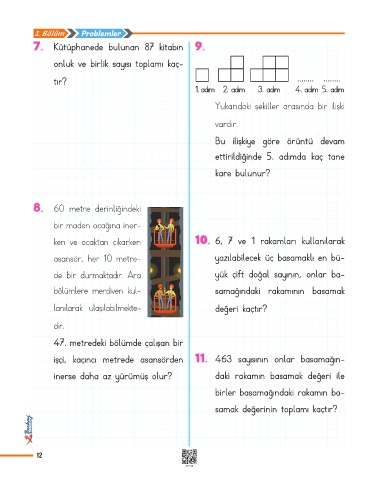 1. Bölüm Problemler
7. Kütüphanede bulunan 87 kitabın
onluk ve birlik sayısı toplamı kaç-
tır?
8. 60 metre derinliğindeki
bir maden ocağına iner-
ken ve ocaktan çıkarken
asansör, her 10 metre-
de bir durmaktadır. Ara
bölümlere merdiven kul-
lanılarak ulaşılabilmekte-
dir.
47. metredeki bölümde çalışan bir
işçi, kaçıncı metrede asansörden
inerse daha az yürümüş olur?
9.
........ ........
1. adım 2. adım 3. adım 4. adım 5. adım
Yukarıdaki şekiller arasında bir ilişki
vardır.
Bu ilişkiye göre örüntü devam
ettirildiğinde 5. adımda kaç tane
kare bulunur?
10. 6, 7 ve 1 rakamları kullanılarak
yazılabilecek üç basamaklı en bü-
yük çift doğal sayının, onlar ba-
samağındaki rakamının basamak
değeri kaçtır?
11. 463 sayısının onlar basamağın-
daki rakamın basamak değeri ile
birler basamağındaki rakamın ba-
samak değerinin toplamı kaçtır?
12